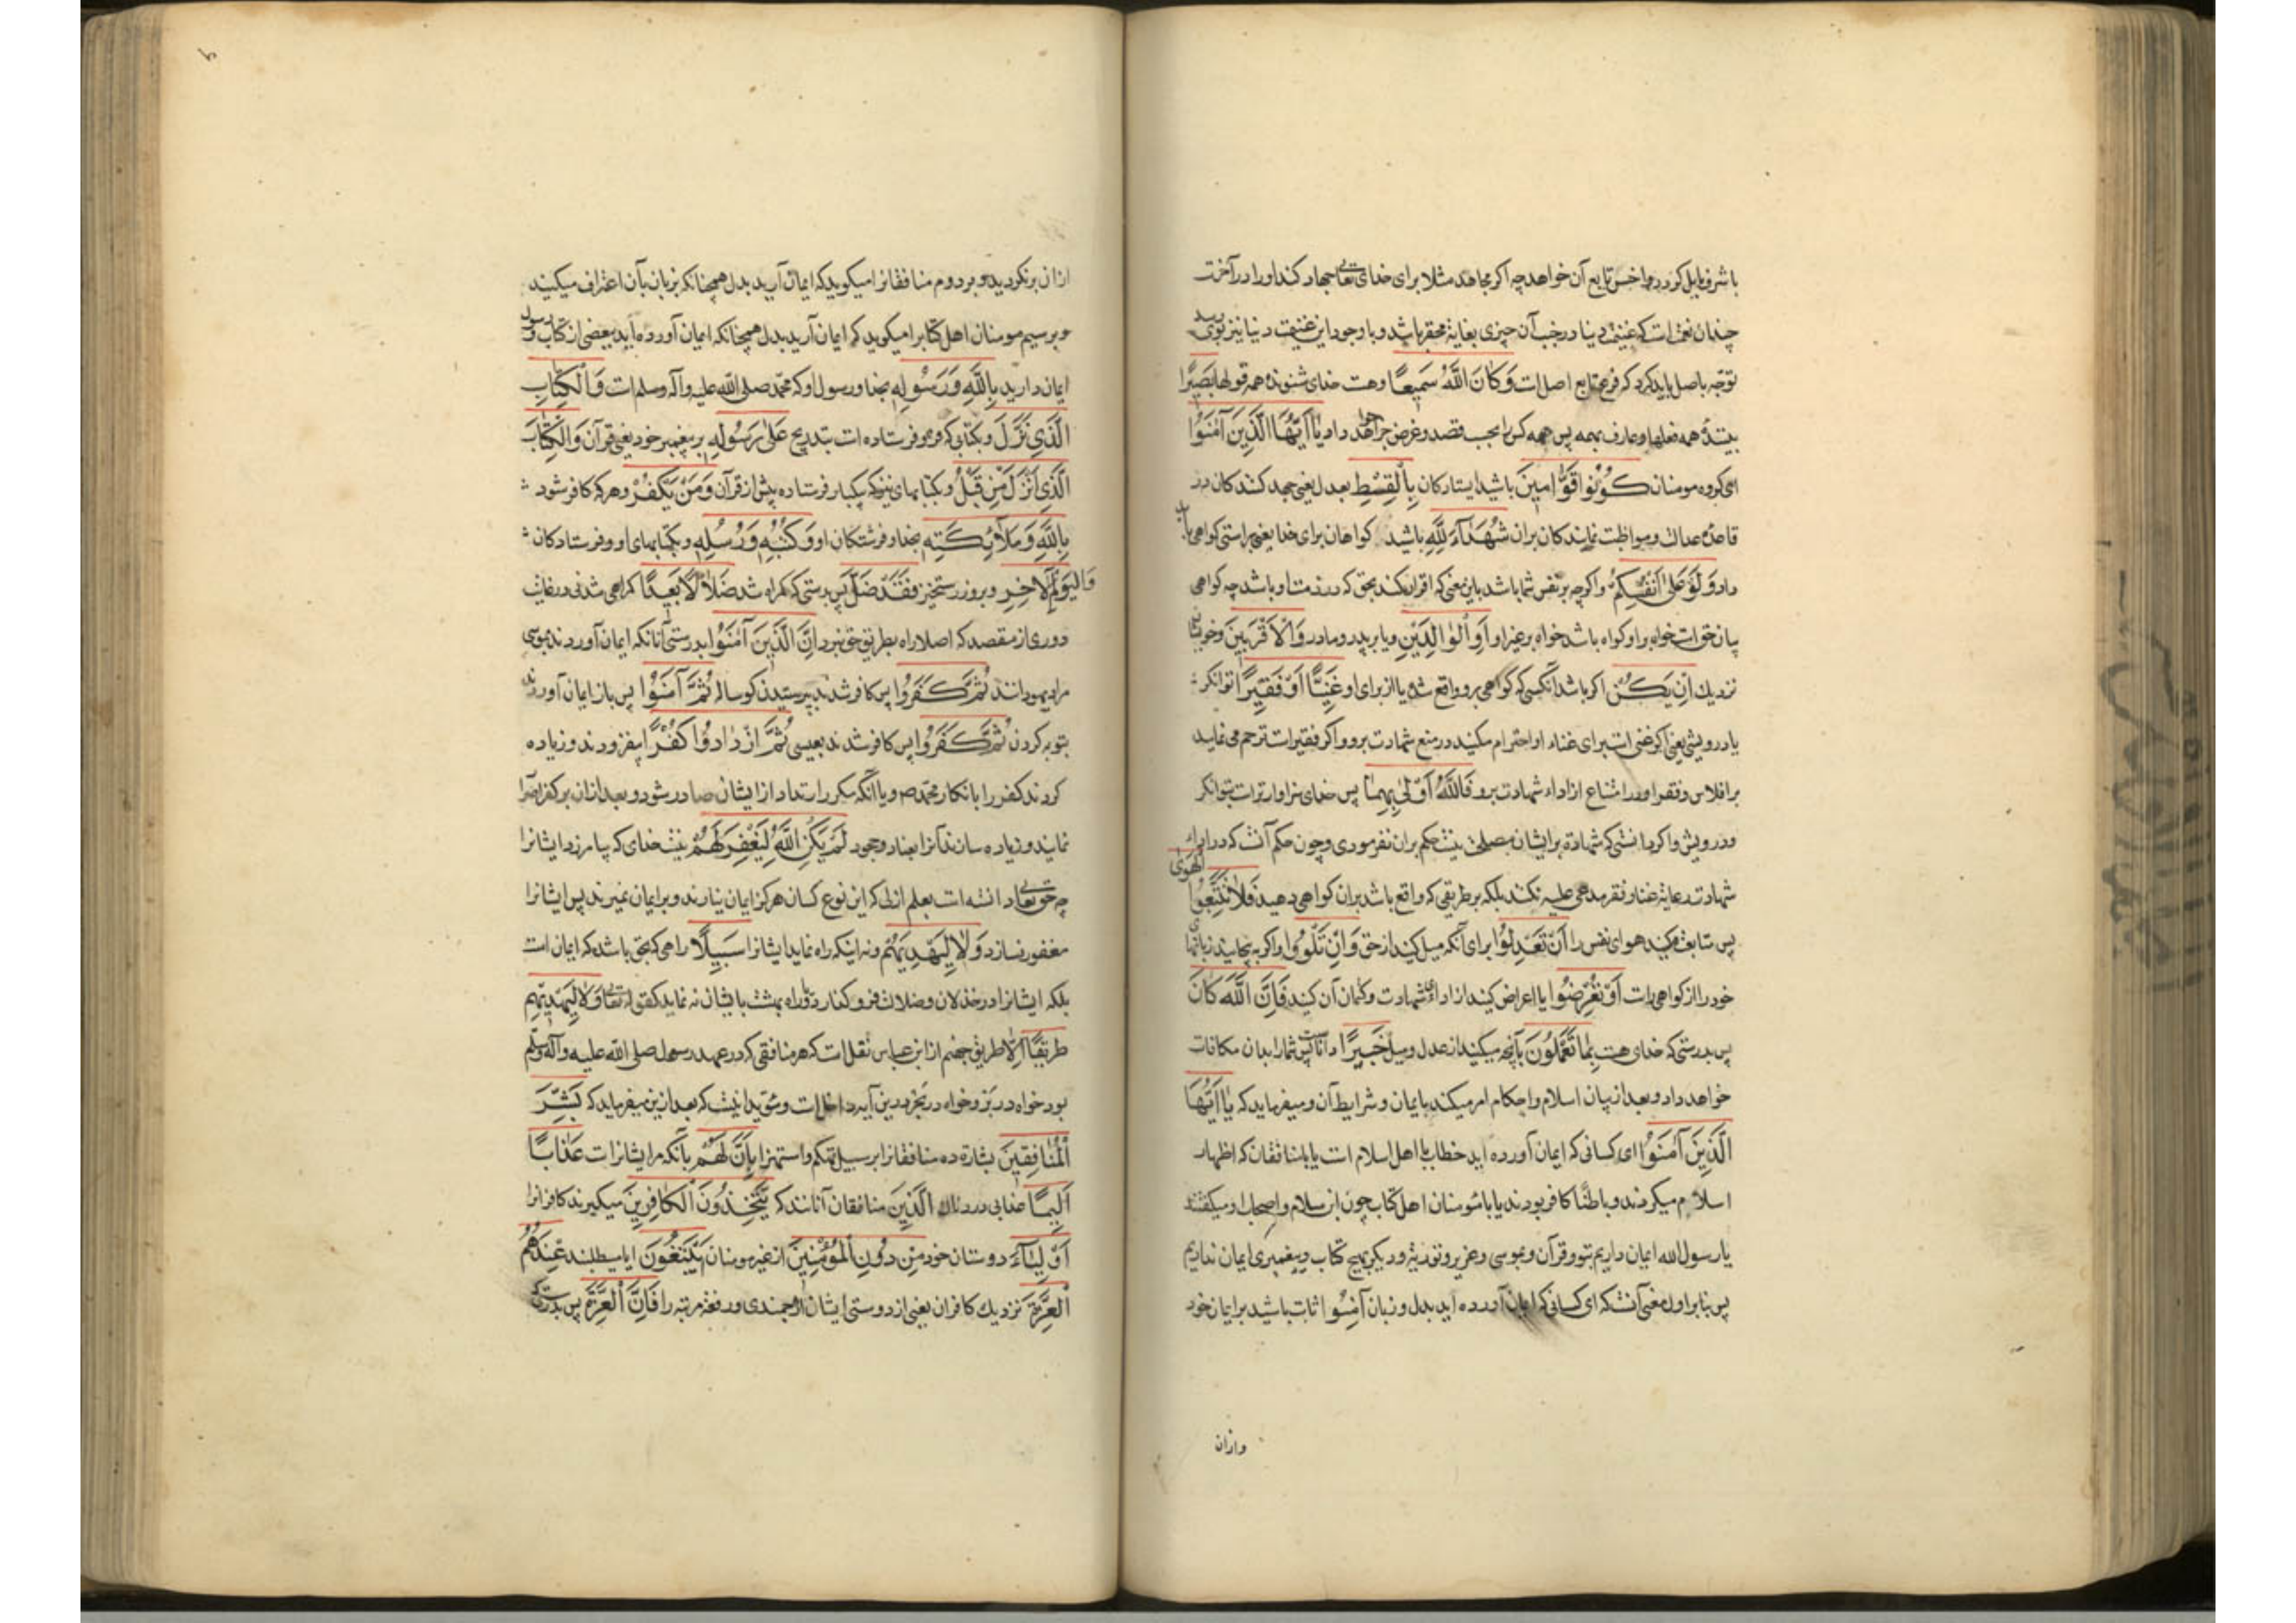 باشرف مایل کردد و اخس تابع آن خواهد چه اکر مجاهد مثلا برای خدای تعالی جهاد کند او را در آخرت
چندان نعمت است که غنیمت دنیا در جنب آن چیزی بغایة محقر باشد و با وجود این غنیمت دنیا نیز بوی رسد
توجه باصل باید کرد که فرع تابع اصل است وَكَانَ اللَّهُ سَمِيعًا و هست خدای شنونده همه قولها بَصِيرًا
بینندهٔ همه فعلها و عارف بهمه پس همه کس را بحسب قصد و غرض جزا خواهد داد يَا أَيُّهَا الَّذِينَ آمَنُوا
ای کروه مومنان كُونُوا قَوَّامِينَ باشید ایستادکان بِالْقِسْطِ بعدل یعنی جهد کنندکان در
قاعدهٔ عدالت و مواظبت نمایندکان بران شُهَدَآءَ لِلَّهِ باشید کواهان برای خدا یعنی براستی کواهی
داد وَلَوْ عَلَى أَنْفُسِكُمْ و اکرچه بر نفس شما باشد باین معنی که اقرار کند بحق که در ذمت او باشد چه کواهی
بیان حق است خواه بر او کواه باشد خواه بر غیر او أَوِ الْوَالِدَيْنِ و یا بر پدر و مادر وَالْأَقْرَبِينَ و خویشان
نزدیك إِنْ يَكُنْ اکر باشد آنکسی که کواهی برو واقع شده یا از برای او غَنِيًّا أَوْ فَقِيرًا توانکر
یا درویش یعنی اکر غنی است برای غناء او احترام مکنید در منع شهادت برو و اکر فقیر است ترحم می نماید
بر افلاس و فقر او در امتناع از اداء شهادت برو فَاللَّهُ أَوْلَى بِهِمَا پس خدای سزاوارتر است بتوانکر
و درویش و اکر دانستی که شهادة بر ایشان مصلحت نیست حکم بران نفرمودی و چون حکم آنست که در اداء
شهادت رعایة غنا و فقر مدعی علیه نکنند بلکه بر طریقی که واقع باشد بران کواهی دهید فَلَا تَتَّبِعُوا الْهَوَىٰ
پس متابعت مکنید هوای نفس را أَنْ تَعْدِلُوا برای آنکه میل کنید از حق وَإِنْ تَلْوُوا و اکر بپیچانید زبانهای
خود را از کواهی راست أَوْ تُعْرِضُوا یا اعراض کنید از اداء شهادت و کتمان آن کنید فَإِنَّ اللَّهَ كَانَ
پس بدرستی که خدای هست بِمَا تَعْمَلُونَ بآنچه میکنید از عدل و میل خَبِيرًا دانا پس شما را بدان مکافات
خواهد داد و بعد از بیان اسلام و احکام امر میکند بایمان و شرایط آن و میفرماید که يَا أَيُّهَا
الَّذِينَ آمَنُوا ای کسانی که ایمان آورده اید خطاب با اهل اسلام است یا با منافقان که اظهار
اسلام میکردند و باطنًا کافر بودند یا با مؤمنان اهل کتاب چون ابن سلام و اصحاب او میکفتند
یا رسول الله ایمان داریم بتو و قرآن و بموسی و عزیر و توریة و دیکر بهیچ کتاب و پیغمبری ایمان نداریم
پس بنا بر اول معنی آنست که ای کسانی که ایمان آورده اید بدل و زبان آمِنُوا ثابت باشید بر ایمان خود
وازان
ازان برنکردید و بر دوم منافقانرا میکوید که ایمان آرید بدل همچنانکه بزبان بآن اعتراف میکنید
و بر سیم مومنان اهل کتابرا میکوید که ایمان آرید بدل همچنانکه ایمان آورده اید ببعضی از کتاب و رسول
ایمان دارید بِاللَّهِ وَرَسُولِهِ بخدا و رسول او که محمد صلی الله علیه و آله و سلم است وَالْكِتَابِ
الَّذِي نَزَّلَ و بکتابی که فرو فرستاده است بتدریج عَلَى رَسُولِهِ بر پیغمبر خود یعنی قرآن وَالْكِتَابِ
الَّذِي أَنْزَلَ مِنْ قَبْلُ و بکتابهای نیز که یکبار فرستاده پیش از قرآن وَمَنْ يَكْفُرْ و هرکه کافر شود
بِاللَّهِ وَمَلَائِكَتِهِ بخدا و فرشتکان او وَكُتُبِهِ وَرُسُلِهِ و بکتابهای او و فرستادکان
وَالْيَوْمِ الْآخِرِ و بروز رستخیز فَقَدْ ضَلَّ پس بدرستی که کمراه شد ضَلَالًا بَعِيدًا کمراهی شدنی در غایت
دوری از مقصد که اصلا راه بطریق حق نبرد إِنَّ الَّذِينَ آمَنُوا بدرستی آنانکه ایمان آوردند بموسی
مراد یهودانند ثُمَّ كَفَرُوا پس کافر شدند بپرستیدن کوساله ثُمَّ آمَنُوا پس باز ایمان آوردند
بتوبه کردن ثُمَّ كَفَرُوا پس کافر شدند بعیسی ثُمَّ ازْدَادُوا كُفْرًا بیفزودند و زیاده
کردند کفر را بانکار محمد ص و یا آنکه مکرر ارتداد از ایشان صادر شود و بعد ازان بر کفر اصرار
نمایند و زیاده سازند آنرا بعناد و جحود لَمْ يَكُنِ اللَّهُ لِيَغْفِرَ لَهُمْ نیست خدای که بیامرزد ایشانرا
چه حق تعالی دانسته است بعلم ازلی که این نوع کسان هرکز ایمان نیارند و بر ایمان نمیرند پس ایشانرا
مغفور نسازد وَلَا لِيَهْدِيَهُمْ و نه اینکه راه نماید ایشانرا سَبِيلًا راهی که بحق باشد که ایمان است
بلکه ایشانرا در خذلان و ضلالت فرو کذارد و راه بهشت بایشان نه نماید کقوله تعالی وَلَا لِيَهْدِيَهُمْ
طَرِيقًا إِلَّا طریق جهنم از ابن عباس نقلست که هر منافقی که در عهد رسول صلی الله علیه و آله وسلم
بود خواه در بر و خواه در بحر درین آیه داخل است و مؤید اینست که بعد ازین میفرماید که بَشِّرِ
الْمُنَافِقِينَ بشارة ده منافقانرا بر سبیل تهکم و استهزا بِأَنَّ لَهُمْ بآنکه مر ایشانراست عَذَابًا
أَلِيمًا عذابی دردناك الَّذِينَ منافقان آنانند که يَتَّخِذُونَ الْكَافِرِينَ میکیرند کافرانرا
أَوْلِيَآءَ دوستان خود مِنْ دُونِ الْمُؤْمِنِينَ از غیر مومنان أَيَبْتَغُونَ ایا میطلبند عِنْدَهُمُ
الْعِزَّةَ نزدیك کافران یعنی از دوستی ایشان ارجمندی و رفعة مرتبه را فَإِنَّ الْعِزَّةَ پس بدرستی که